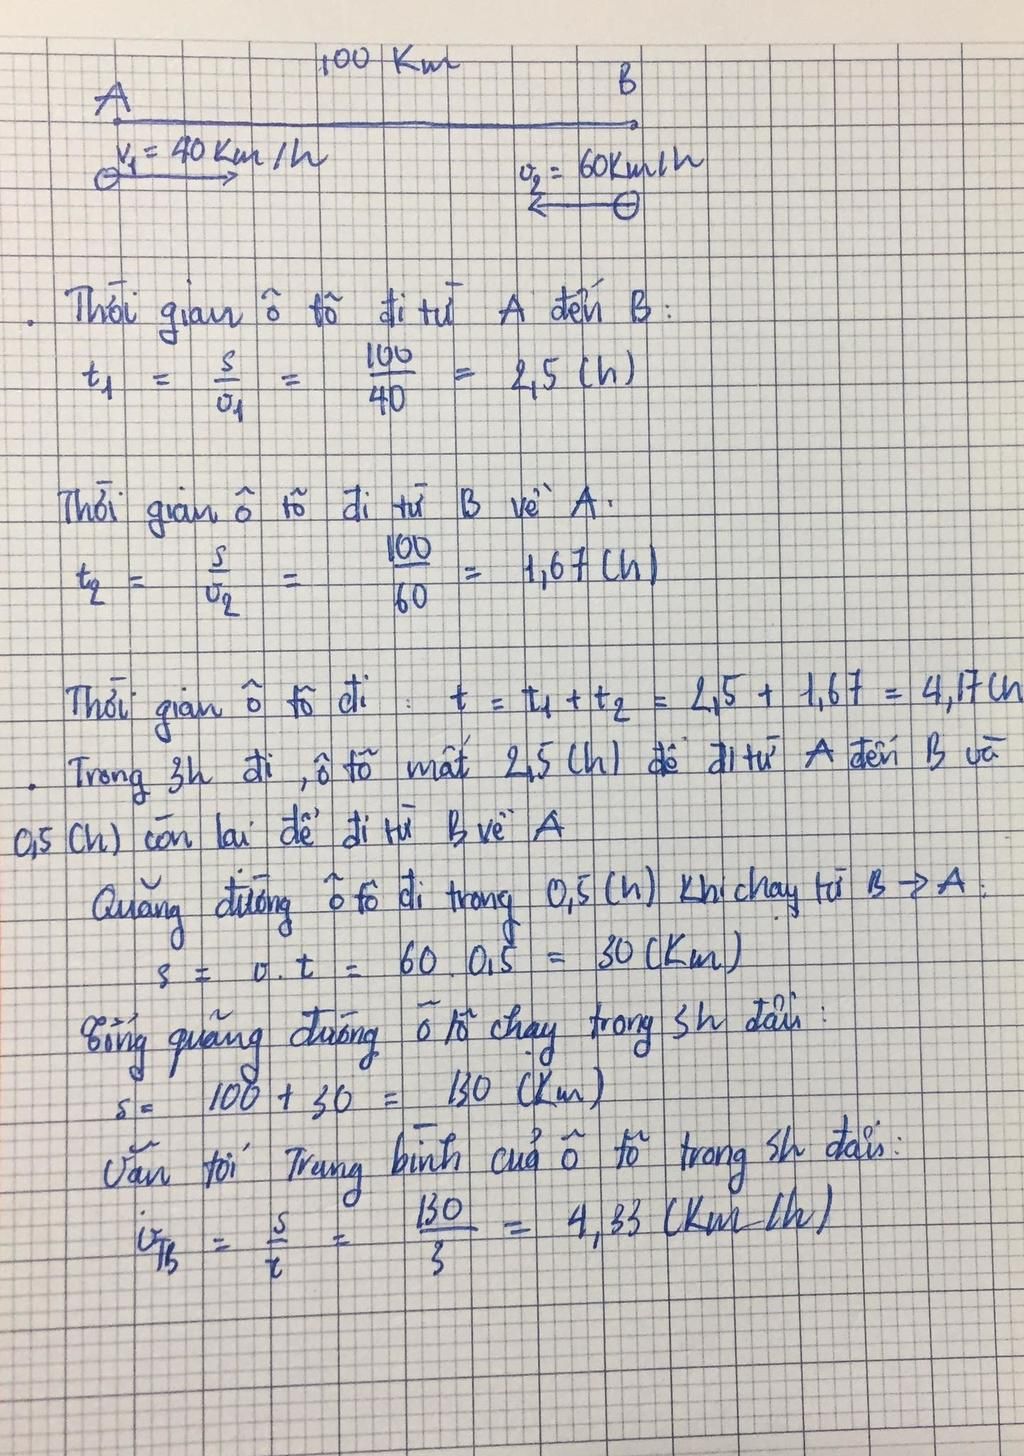 100 Km
A B
v₁ = 40 Km/h
v₂ = 60Km/h
. Thời gian ô tô đi từ A đến B :
t₁ = s/v₁ = 100/40 = 2,5 (h)
Thời gian ô tô đi từ B về A.
t₂ = s/v₂ = 100/60 = 1,67 (h)
Thời gian ô tô đi : t = t₁ + t₂ = 2,5 + 1,67 = 4,17 (h
. Trong 3h đi , ô tô mất 2,5 (h) để đi từ A đến B và
0,5 (h) còn lại để đi từ B về A
Quãng đường ô tô đi trong 0,5 (h) khi chạy từ B → A :
s = v.t = 60 . 0,5 = 30 (Km)
Tổng quãng đường ô tô chạy trong 3h đầu :
s = 100 + 30 = 130 (Km)
Vận tốc Trung bình của ô tô trong 3h đầu :
v_TB = s/t = 130/3 = 4,33 (Km/h)